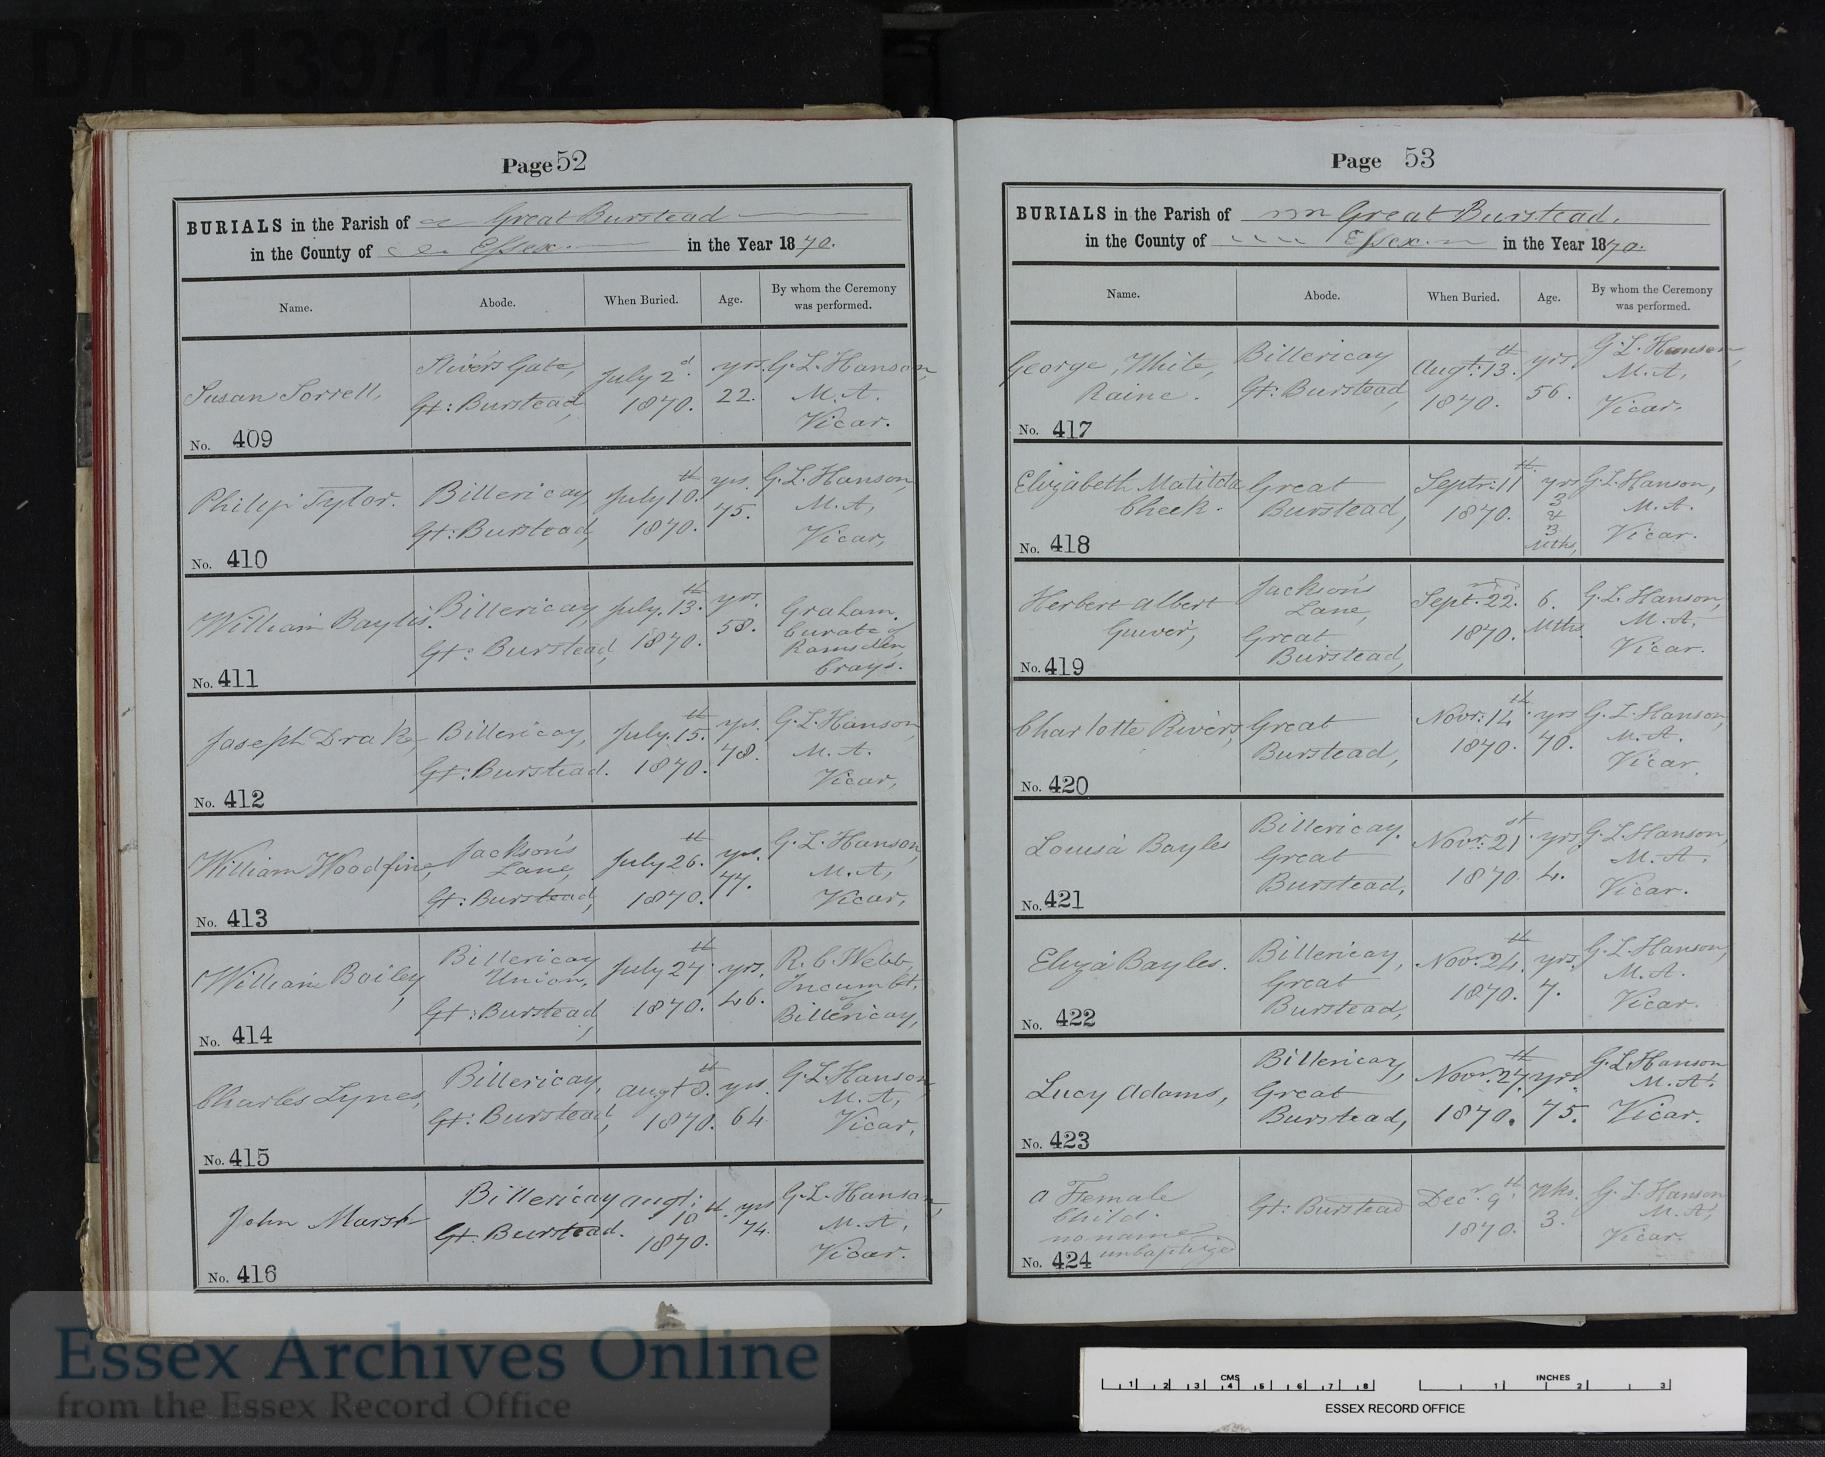 D/P 139/1/22
Page 52
BURIALS in the Parish of Great Burstead
in the County of Essex. in the Year 1870.
Name. Abode. When Buried. Age. By whom the Ceremony was performed.
Susan Sorrell, Gate, Gt: Burstead, July 2d 1870. yrs. 22. G. L. Hanson, M. A. Vicar.
No. 409
Philip Tylor. Billericay, Gt: Burstead, July 10th 1870. yrs. 75. G. L. Hanson, M. A, Vicar,
No. 410
William Baylis. Billericay, Gt: Burstead, July. 13th 1870. yrs. 58. Graham. Curate of Ramsden Crays.
No. 411
Joseph Drake Billericay, Gt: Burstead. July. 15th 1870. yrs. 78. G. L. Hanson, M. A. Vicar,
No. 412
William Woodfine, Jackson's Lane, Gt: Burstead, July 26th 1870. yrs. 77. G. L. Hanson, M. A, Vicar,
No. 413
William Bailey, Billericay Union, Gt: Burstead, July 27th 1870. yrs. 46. R. C. Webb, Incumbt. of Billericay,
No. 414
Charles Lynes, Billericay, Gt: Burstead, Augt 8th 1870. yrs. 64 G. L. Hanson, M. A, Vicar,
No. 415
John Marsh Billericay Gt: Burstead. Augt: 10th. 1870. yrs 74. G. L. Hanson, M. A, Vicar.
No. 416
Page 53
BURIALS in the Parish of Great Burstead.
in the County of Essex. in the Year 1870.
Name. Abode. When Buried. Age. By whom the Ceremony was performed.
George, White, Raine. Billericay Gt: Burstead, Augt: 13th 1870. yrs. 56. G. L. Hanson, M. A, Vicar,
No. 417
Elizabeth Matilda Cheek. Great Burstead, Septr: 11th 1870. yrs 3 & 3 Mths, G. L. Hanson, M. A. Vicar.
No. 418
Herbert Albert Jackson's Lane, Great Burstead, Sept. 22. 1870. 6. Mths. G. L. Hanson, M. A, Vicar.
No. 419
Charlotte Rivers, Great Burstead, Novr: 14th 1870. yrs 70. G. L. Hanson, M. A. Vicar.
No. 420
Louisa Bayles Billericay. Great Burstead, Novr. 21st 1870. yrs. 4. G. L. Hanson, M. A. Vicar.
No. 421
Eliza Bayles. Billericay, Great Burstead, Novr. 24th 1870. yrs. 7. G. L. Hanson, M. A. Vicar.
No. 422
Lucy Adams, Billericay, Great Burstead, Novr. 27th 1870. yrs. 75. G. L. Hanson M. A. Vicar.
No. 423
A Female Child. no name unbaptized Gt: Burstead Decr. 9th 1870. Wks. 3. G. L. Hanson M. A, Vicar.
No. 424
Essex Archives Online
from the Essex Record Office
CMS INCHES
1 2 3 4 5 6 7 8 1 2 3
ESSEX RECORD OFFICE